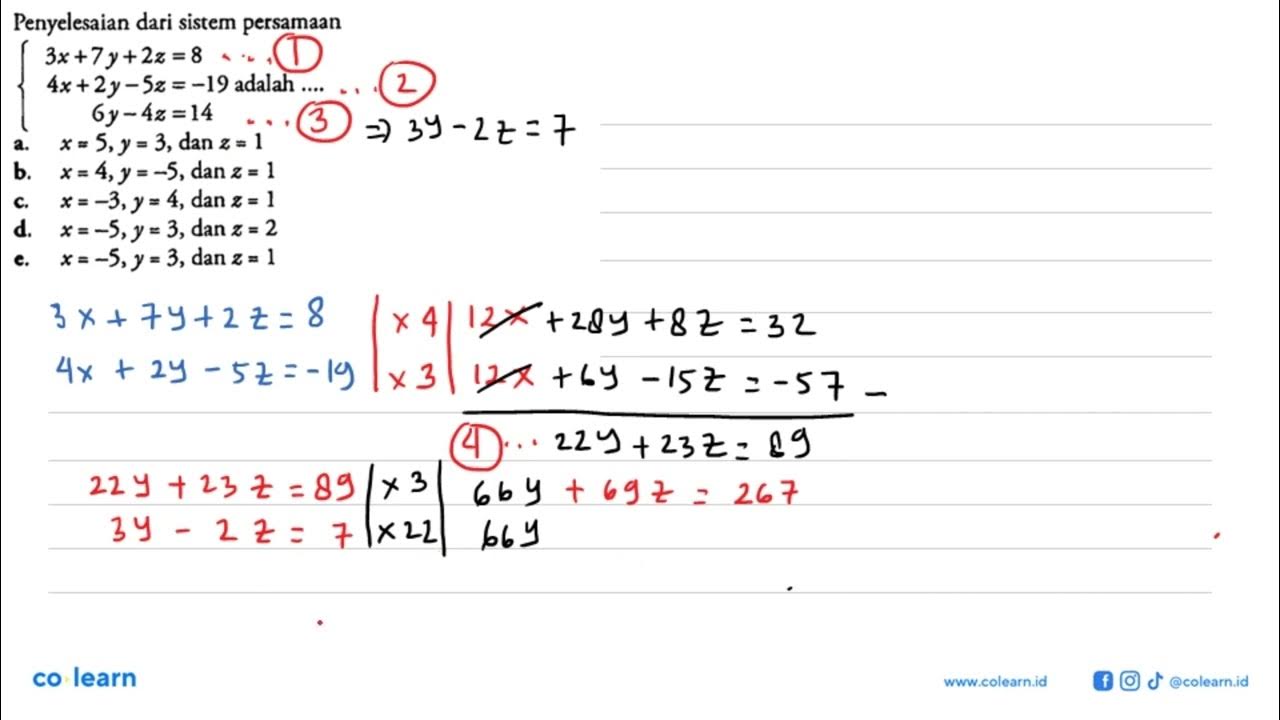 Penyelesaian dari sistem persamaan
3x + 7y + 2z = 8 ..... 1
4x + 2y – 5z = –19 adalah .... ... 2
6y – 4z = 14 .... 3 ⇒ 3y - 2z = 7
a. x = 5, y = 3, dan z = 1
b. x = 4, y = –5, dan z = 1
c. x = –3, y = 4, dan z = 1
d. x = –5, y = 3, dan z = 2
e. x = –5, y = 3, dan z = 1
3x + 7y + 2z = 8 | x 4 | 12x + 28y + 8z = 32
4x + 2y - 5z = -19 | x 3 | 12x + 6y - 15z = -57 -
4 ... 22y + 23z = 89
22y + 23z = 89 | x 3 | 66y + 69z = 267
3y - 2z = 7 | x 22 | 66y
co learn
www.colearn.id @colearn.id